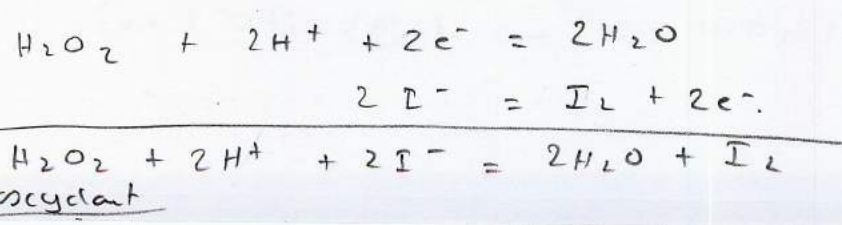 H₂O₂ + 2H⁺ + 2e⁻ = 2H₂O
2 I⁻ = I₂ + 2e⁻.
H₂O₂ + 2H⁺ + 2I⁻ = 2H₂O + I₂
oxydant